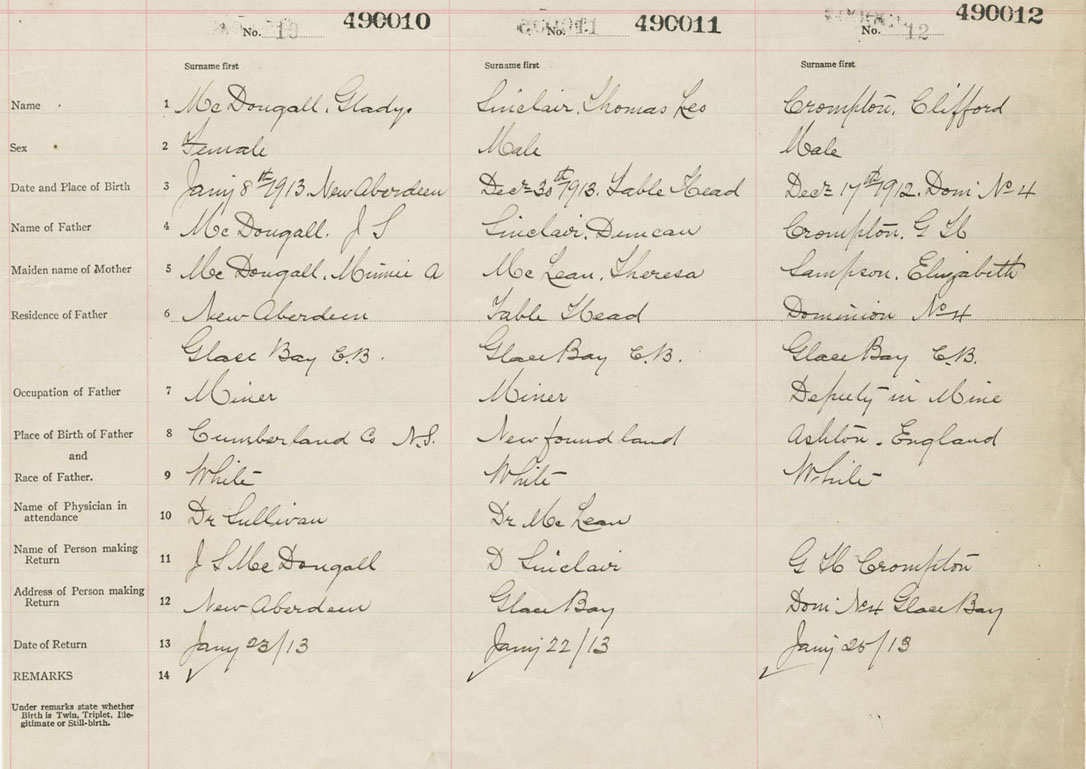 490010 490011 490012
No. 10 No. 11 No. 12
Surname first Surname first Surname first
Name 1 McDougall, Gladys Sinclair, Thomas Leo Crompton, Clifford
Sex 2 Female Male Male
Date and Place of Birth 3 Jany 8th 1913. New Aberdeen Decr 30th 1913. Table Head Decr 17th 1912. Domi No 4
Name of Father 4 McDougall. J S Sinclair, Duncan Crompton, G H
Maiden name of Mother 5 McDougall, Minnie A McLean, Theresa Sampson, Elizabeth
Residence of Father 6 New Aberdeen Table Head Dominion No 4
Glace Bay C.B. Glace Bay C.B. Glace Bay C.B.
Occupation of Father 7 Miner Miner Deputy in Mine
Place of Birth of Father 8 Cumberland Co N.S. Newfoundland Ashton, England
and
Race of Father. 9 White White White
Name of Physician in
attendance 10 Dr Sullivan Dr McLean
Name of Person making
Return 11 J S McDougall D Sinclair G H Crompton
Address of Person making
Return 12 New Aberdeen Glace Bay Domi No 4 Glace Bay
Date of Return 13 Jany 23/13 Jany 22/13 Jany 25/13
REMARKS 14
Under remarks state whether
Birth is Twin, Triplet, Ille-
gitimate or Still-birth.